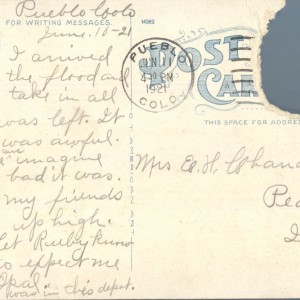 Pueblo Colo
FOR WRITING MESSAGES.
June. 10-21
I arrived
the flood and
take in all
was left. It
was awful.
imagine
bad it was.
my friends
up high.
Let Ruby know
to expect me
Opal
was in this depot.
PUEBLO
JUN 11
4 PM
1921
COLO.
POST
CAR
THIS SPACE FOR ADDRESS
Mrs E. H. Chana
Pe